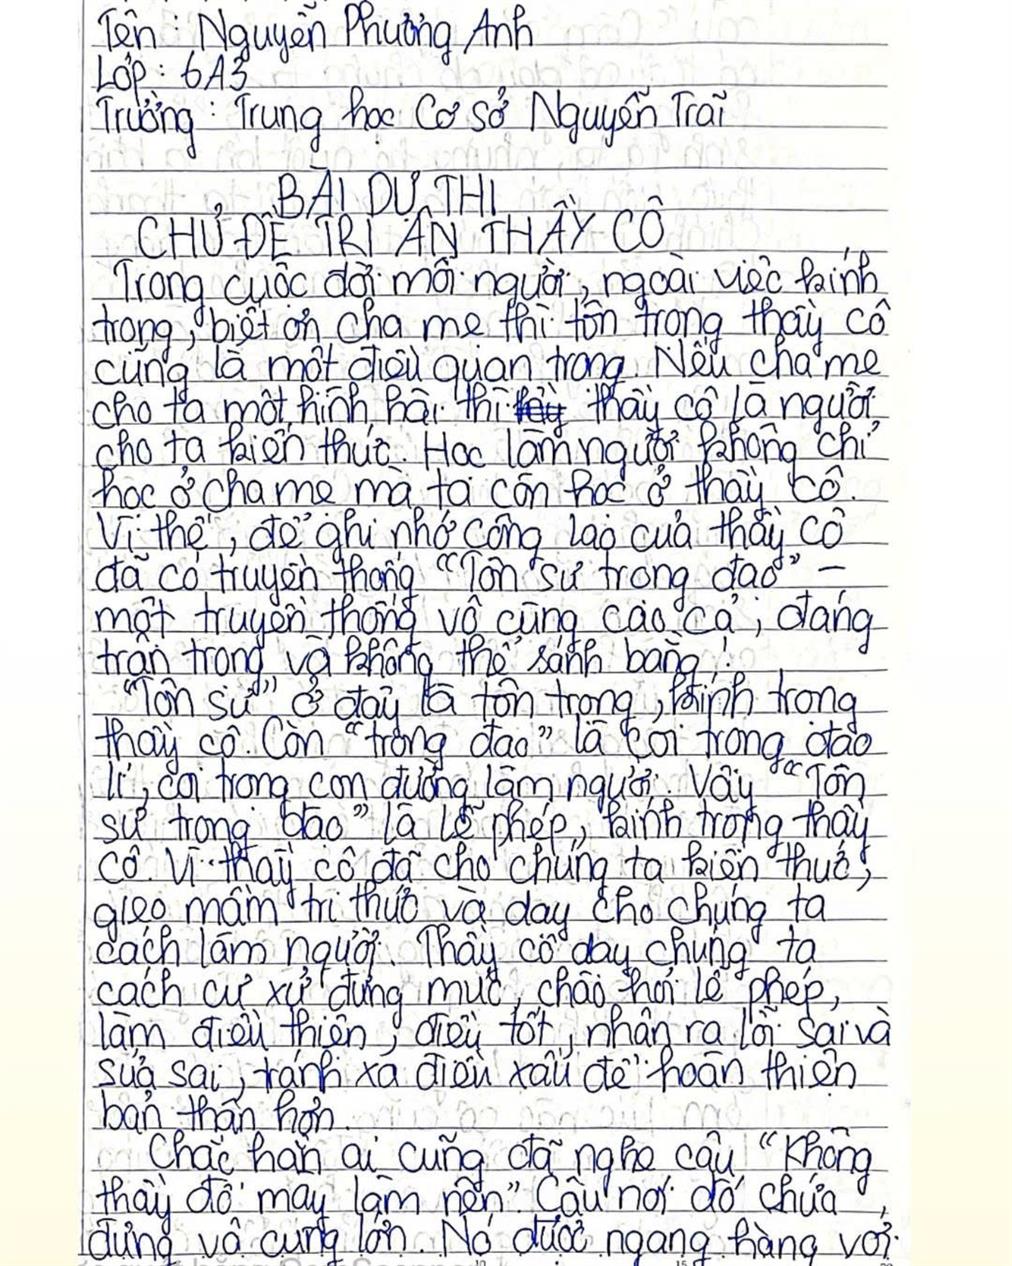 Tên: Nguyễn Phương Anh
Lớp: 6A3
Trường: Trung học Cơ sở Nguyễn Trãi
BÀI DỰ THI
CHỦ ĐỀ TRI ÂN THẦY CÔ
Trong cuộc đời mỗi người, ngoài việc kính
trọng, biết ơn cha mẹ thì tôn trọng thầy cô
cũng là một điều quan trọng. Nếu cha mẹ
cho ta một hình hài thì thầy cô là người
cho ta kiến thức. Học làm người không chỉ
học ở cha mẹ mà ta còn học ở thầy cô.
Vì thế, để ghi nhớ công lao của thầy cô
đã có truyền thống “Tôn sư trọng đạo” –
một truyền thống vô cùng cao cả, đáng
trân trọng và không thể sánh bằng!
“Tôn sư” ở đây là tôn trọng, kính trọng
thầy cô. Còn “trọng đạo” là coi trọng đạo
lí, coi trọng con đường làm người. Vậy “Tôn
sư trọng đạo” là lễ phép, kính trọng thầy
cô. Vì thầy cô đã cho chúng ta kiến thức,
gieo mầm tri thức và dạy cho chúng ta
cách làm người. Thầy cô dạy chúng ta
cách cư xử đúng mực, chào hỏi lễ phép,
làm điều thiện, điều tốt, nhận ra lỗi sai và
sửa sai, tránh xa điều xấu để hoàn thiện
bản thân hơn.
Chắc hẳn ai cũng đã nghe câu “Không
thầy đố mày làm nên”. Câu nói đó chứa
đựng vô cùng lớn. Nó được ngang hàng với